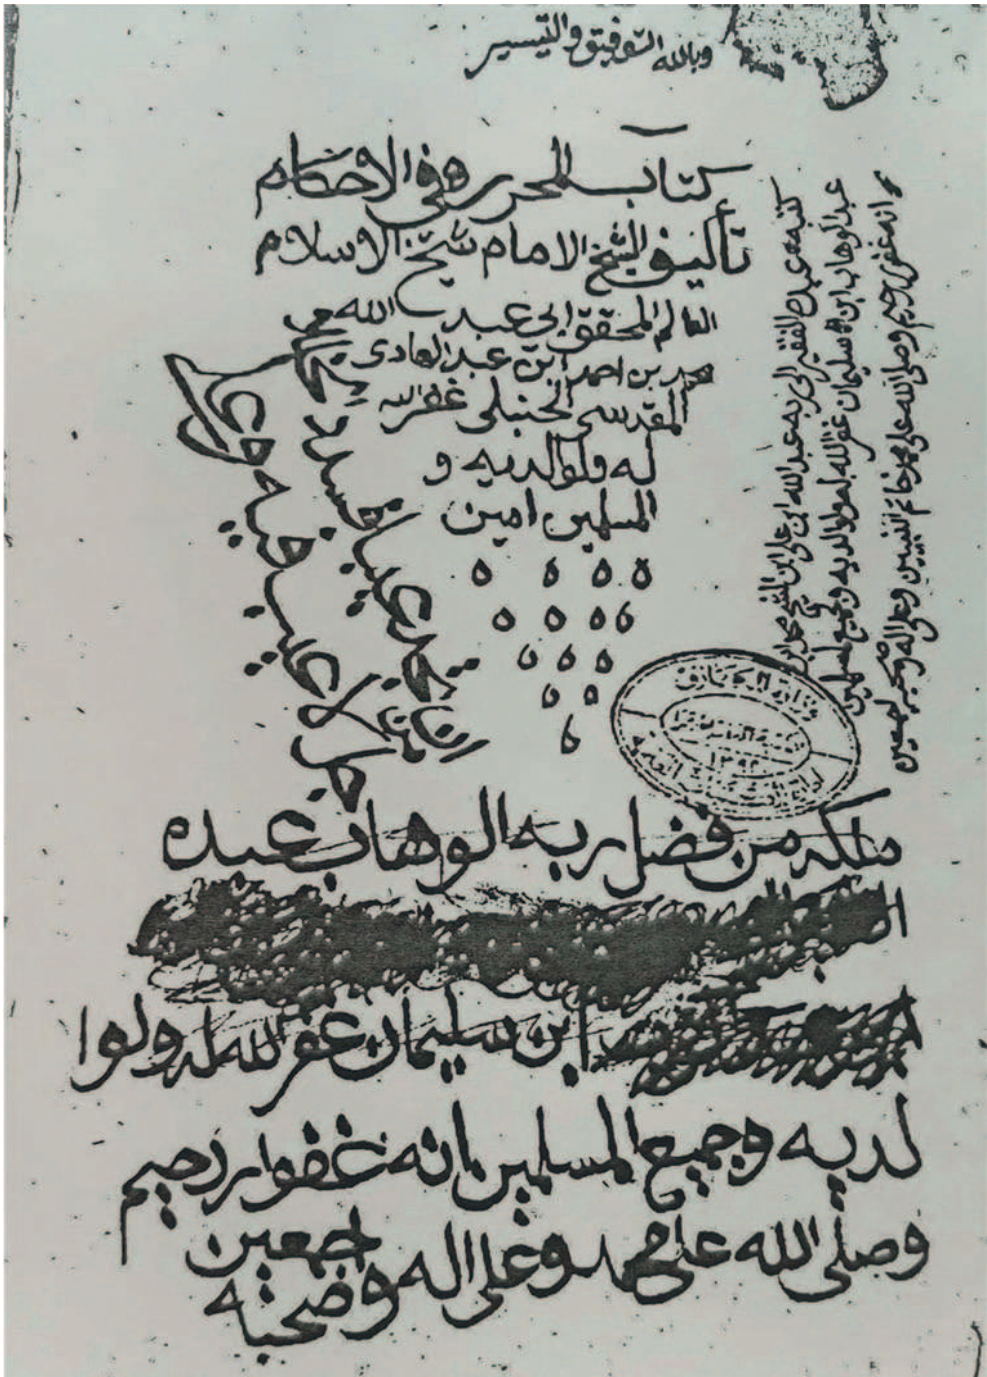 وبالله التوفيق والتيسير
كتاب المحرر في الاحكام
تأليف الشيخ الامام شيخ الاسلام
العالم المحقق ابي عبد الله مح
مد بن احمد ابن عبد الهادي
المقدسي الحنبلي غفر الله
له ولوالديه و
المسلمين امين
ان تجد عيبا فسد الخللا
جل من لا عيب فيه وعلا
كتبه بيده الفقير الى ربه عبد الله ابن علي ابن الشيخ محمد ابن
عبد الوهاب ابن سليمان غفر الله له ولوالديه وجميع المسلمين
انه غفور رحيم وصلى الله على محمد خاتم النبيين وعلى اله وصحبه اجمعين
وزارة المعارف
١٣٩٣
ملكه من فضل ربه الوهاب عبده
ابن سليمان غفر الله له ولوا
لديه وجميع المسلمين انه غفور رحيم
وصلى الله على محمد وعلى اله وصحبه
اجمعين